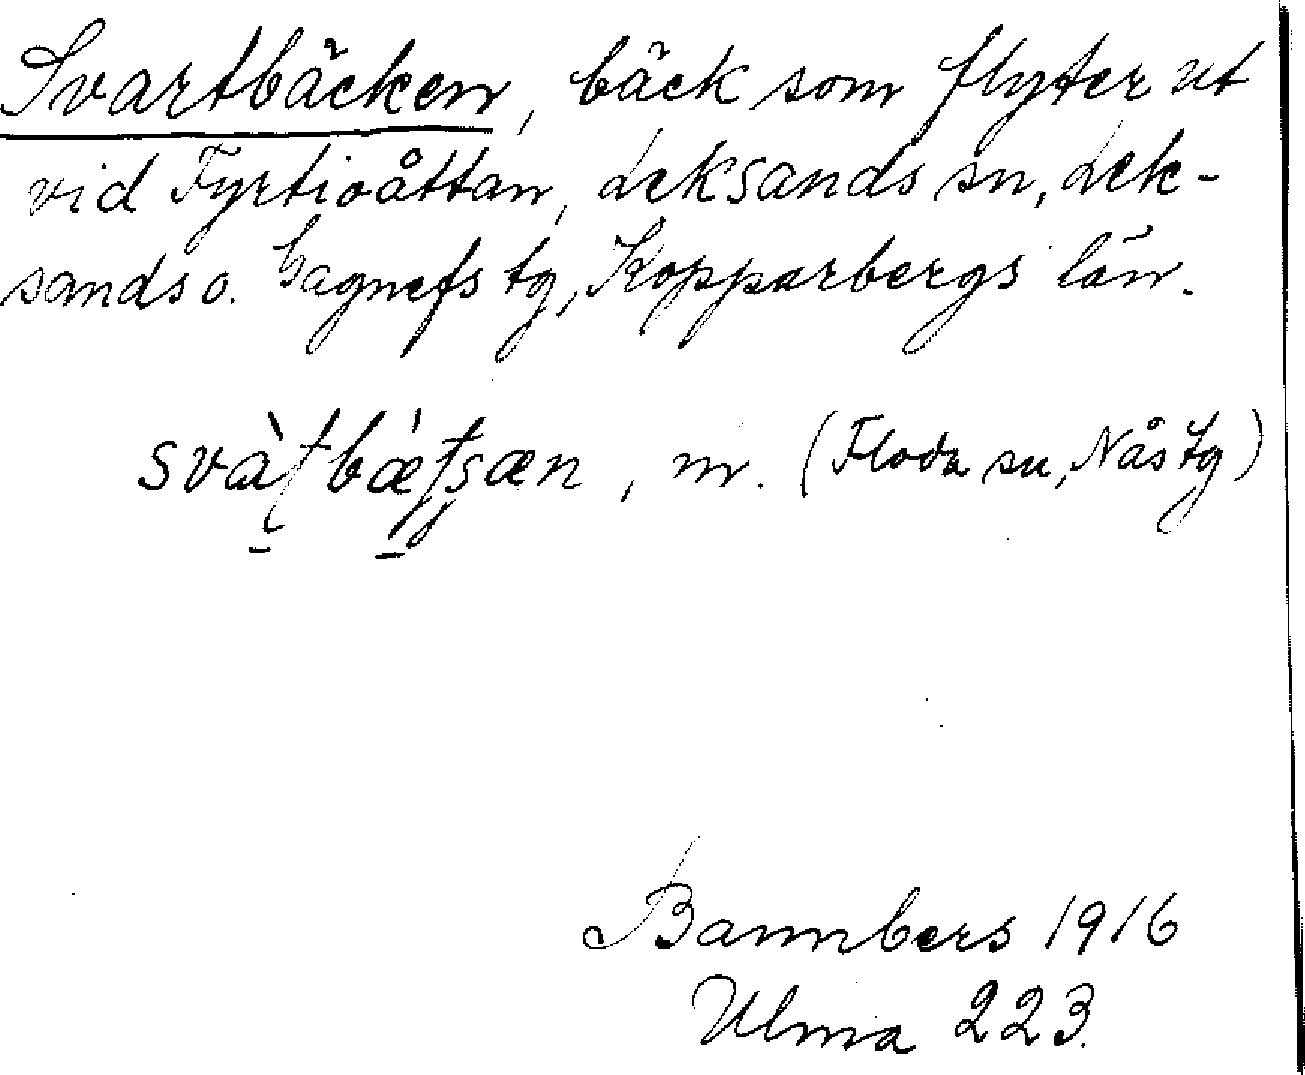 Svartbäcken, bäck som flyter ut
vid Fyrtioåttan, Leksands sn, Lek-
sands o. Gagnefs tg, Kopparbergs län.
m. (Floda sn, Nås tg)
Bannbers 1916
Ulma 223.